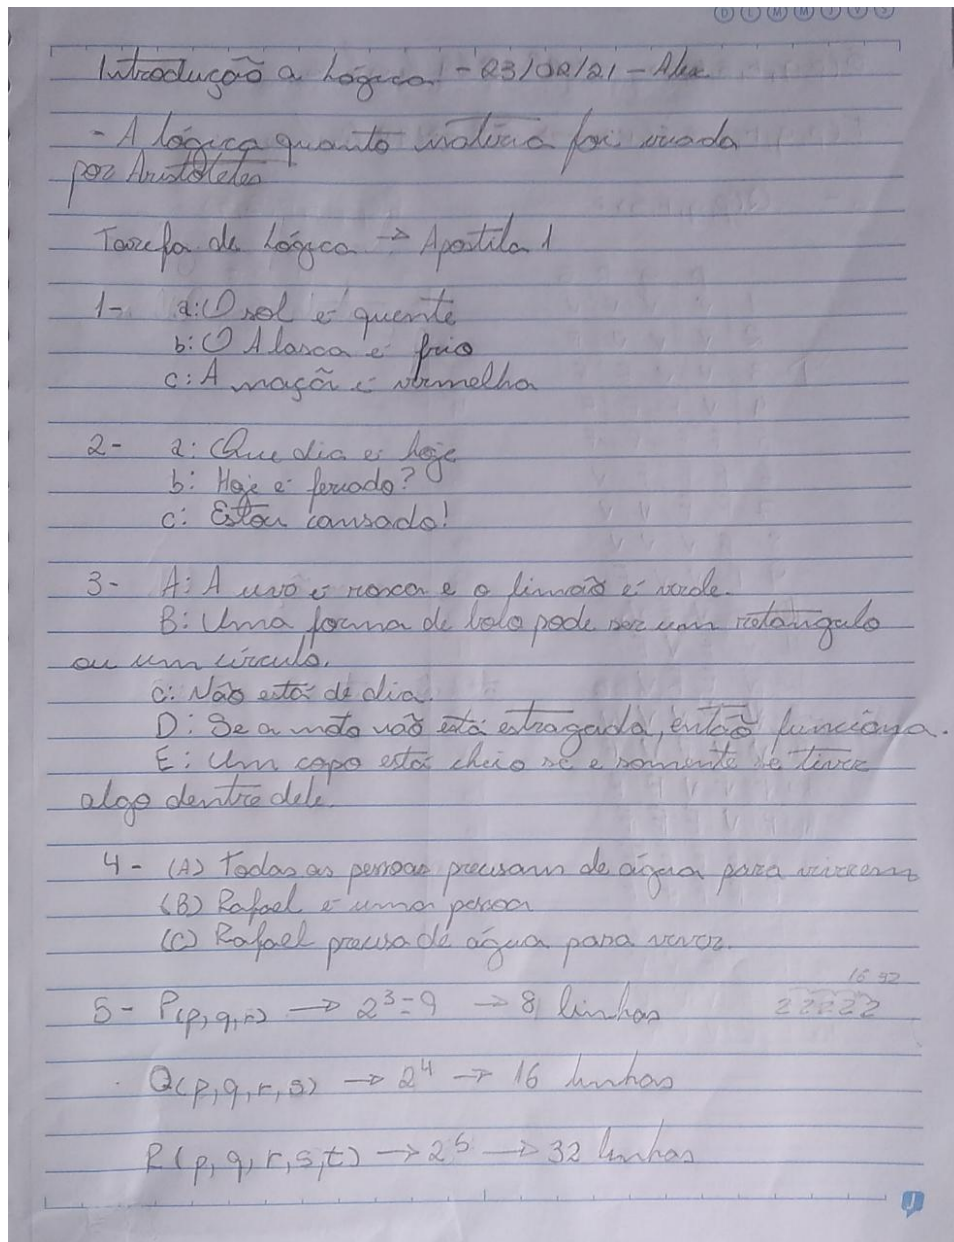 D L M M J V S
Introdução a Lógica - 23/02/21 - Alex
- A lógica quanto matéria foi criada
por Aristóteles
Tarefa de Lógica → Apostila 1
1- a: O sol é quente
b: O Alasca é frio
c: A maçã é vermelha
2- a: Que dia é hoje
b: Hoje é feriado?
c: Estou cansado!
3- A: A uva é roxa e o limão é verde.
B: Uma forma de bolo pode ser um retângulo
ou um círculo.
C: Não está de dia.
D: Se a moto não está estragada, então funciona.
E: Um copo está cheio se e somente se tiver
algo dentro dele.
4- (A) Todas as pessoas precisam de água para viverem
(B) Rafael é uma pessoa
(C) Rafael precisa de água para viver.
16 32
5- P(p,q,r) → 2³=9 → 8 linhas 2 2 2 2 2
Q(p,q,r,s) → 2⁴ → 16 linhas
R(p,q,r,s,t) → 2⁵ → 32 linhas
J